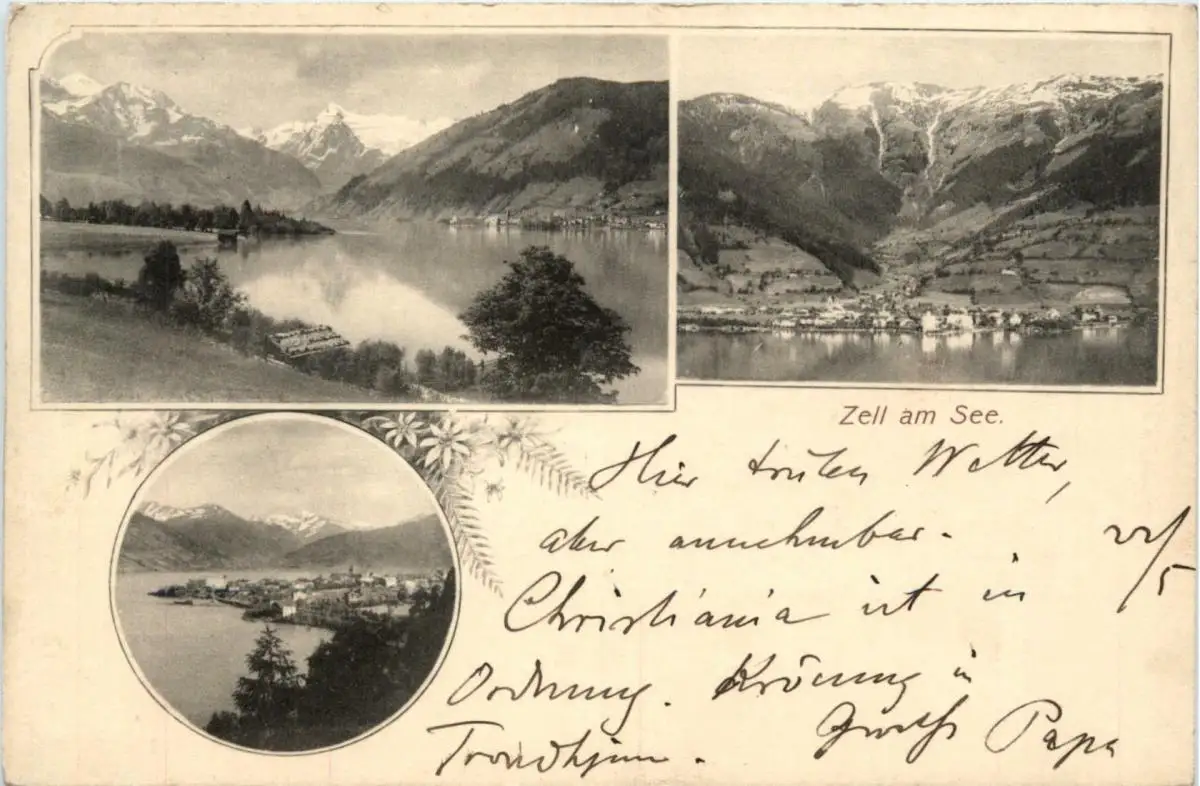 Zell am See.
Hier trüben Wetter,
aber annehmbar. 22/5
Christiania ist in
Ordnung. Krönung in
Trondhjem. Papa